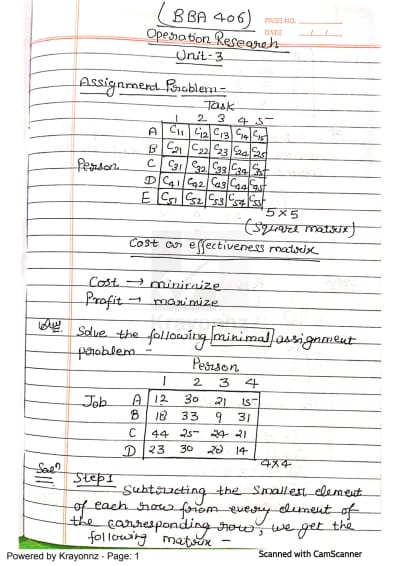 (BBA 406)
PAGE NO.
DATE / /
Operation Research
Unit-3
Assignment Problem -
Task
1 2 3 4 5
A C11 C12 C13 C14 C15
B C21 C22 C23 C24 C25
Person C C31 C32 C33 C34 C35
D C41 C42 C43 C44 C45
E C51 C52 C53 C54 C55
5 x 5
(Square matrix)
Cost or effectiveness matrix
Cost → minimize
Profit → maximize
Krayonnz
Que. Solve the following minimal assignment
problem -
Person
1 2 3 4
Job A 12 30 21 15
B 18 33 9 31
C 44 25 24 21
D 23 30 28 14
4x4
Step 1
Subtracting the smallest element
of each row from every element of
the corresponding row, we get the
following matrix -
Powered by Krayonnz - Page: 1
Scanned with CamScanner